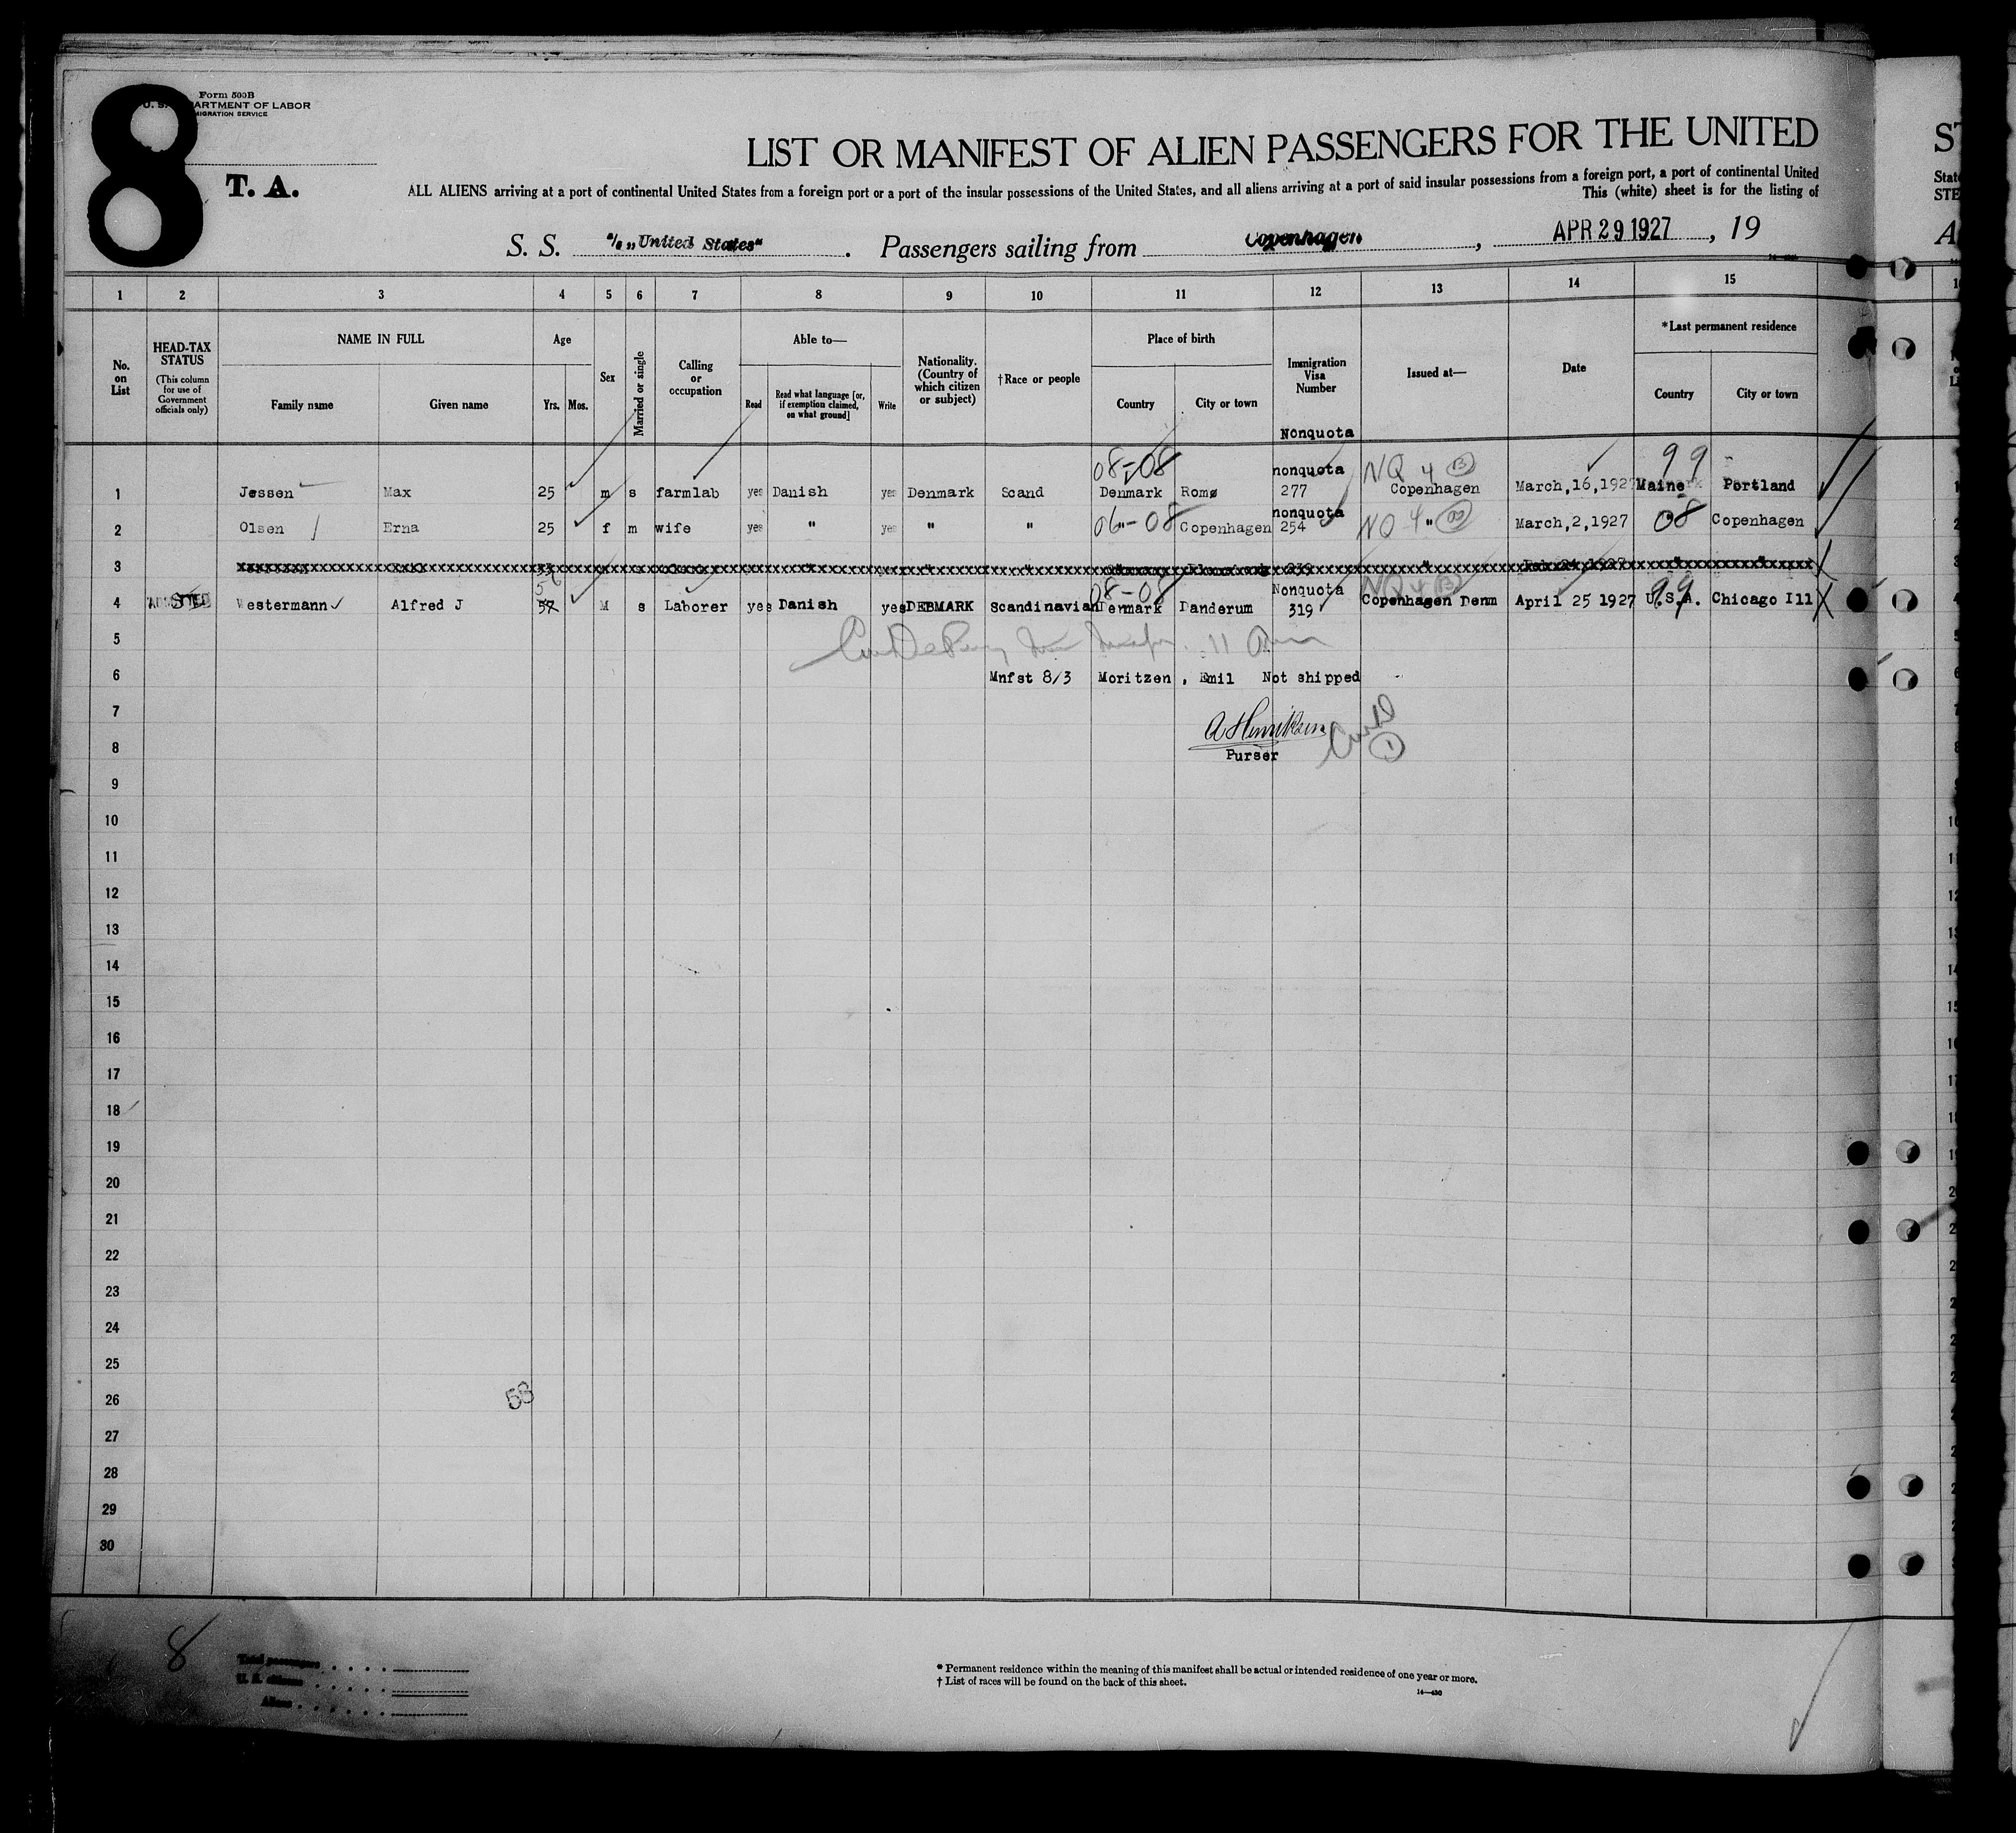 8
Form 500B
U. S. DEPARTMENT OF LABOR
IMMIGRATION SERVICE
T. A.
LIST OR MANIFEST OF ALIEN PASSENGERS FOR THE UNITED
ALL ALIENS arriving at a port of continental United States from a foreign port or a port of the insular possessions of the United States, and all aliens arriving at a port of said insular possessions from a foreign port, a port of continental United
This (white) sheet is for the listing of
S. S. s/s „United States" . Passengers sailing from Copenhagen , APR 29 1927 , 19
1 2 3 4 5 6 7 8 9 10 11 12 13 14 15
No. on List
HEAD-TAX STATUS (This column for use of Government officials only)
NAME IN FULL Family name Given name
Age Yrs. Mos.
Sex
Married or single
Calling or occupation
Able to— Read Read what language [or, if exemption claimed, on what ground] Write
Nationality. (Country of which citizen or subject)
†Race or people
Place of birth Country City or town
Immigration Visa Number
Issued at—
Date
*Last permanent residence Country City or town
Nonquota
08-08 nonquota NQ 4 99
1 Jessen Max 25 m s farmlab yes Danish yes Denmark Scand Denmark Romø 277 Copenhagen March,16,1927 Maine Portland
nonquota
2 Olsen Erna 25 f m wife yes " yes " " 06-08 Copenhagen 254 NQ 4 " March,2,1927 08 Copenhagen
3
08-08 Nonquota NQ 4 99
4 Westermann Alfred J 57 M s Laborer yes Danish yes DEBMARK Scandinavian Denmark Danderum 319 Copenhagen Denm April 25 1927 U.S.A. Chicago Ill
5
6 Mnfst 8/3 Moritzen , Emil Not shipped
7
A Henriksen
8 Purser 1
9
10
11
12
13
14
15
16
17
18
19
20
21
22
23
24
25
26 53
27
28
29
30
8
Total passengers
U. S. citizens
Aliens
* Permanent residence within the meaning of this manifest shall be actual or intended residence of one year or more.
† List of races will be found on the back of this sheet.
14—430